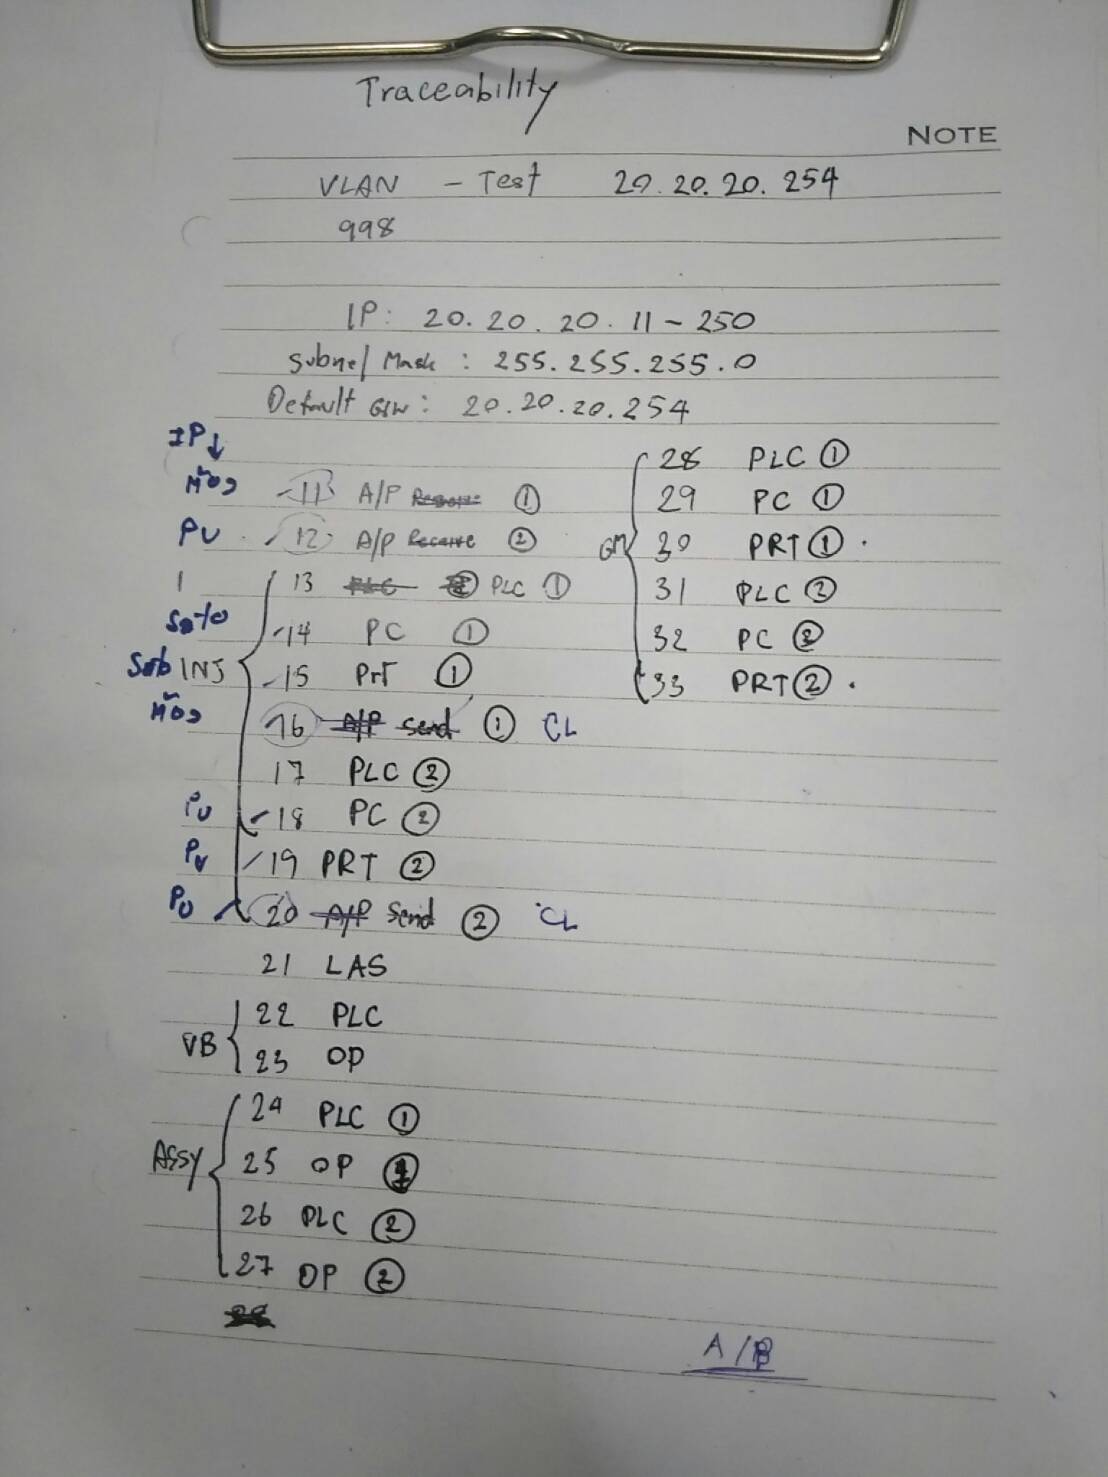 Traceability
NOTE
VLAN - Test 20.20.20.254
998
IP: 20.20.20.11-250
Subnet Mask : 255.255.255.0
Default GW: 20.20.20.254
IP↓
11 A/P ①
PU 12 A/P Receive ②
13 PLC ①
Sato 14 PC ①
Sub INJ 15 PrT ①
16 A/P Send ① CL
17 PLC ②
PU 18 PC ②
PU 19 PRT ②
PU 20 A/P Send ② CL
21 LAS
VB
22 PLC
23 OP
Assy
24 PLC ①
25 OP ①
26 PLC ②
27 OP ②
GM
28 PLC ①
29 PC ①
30 PRT ①
31 PLC ②
32 PC ②
33 PRT ②